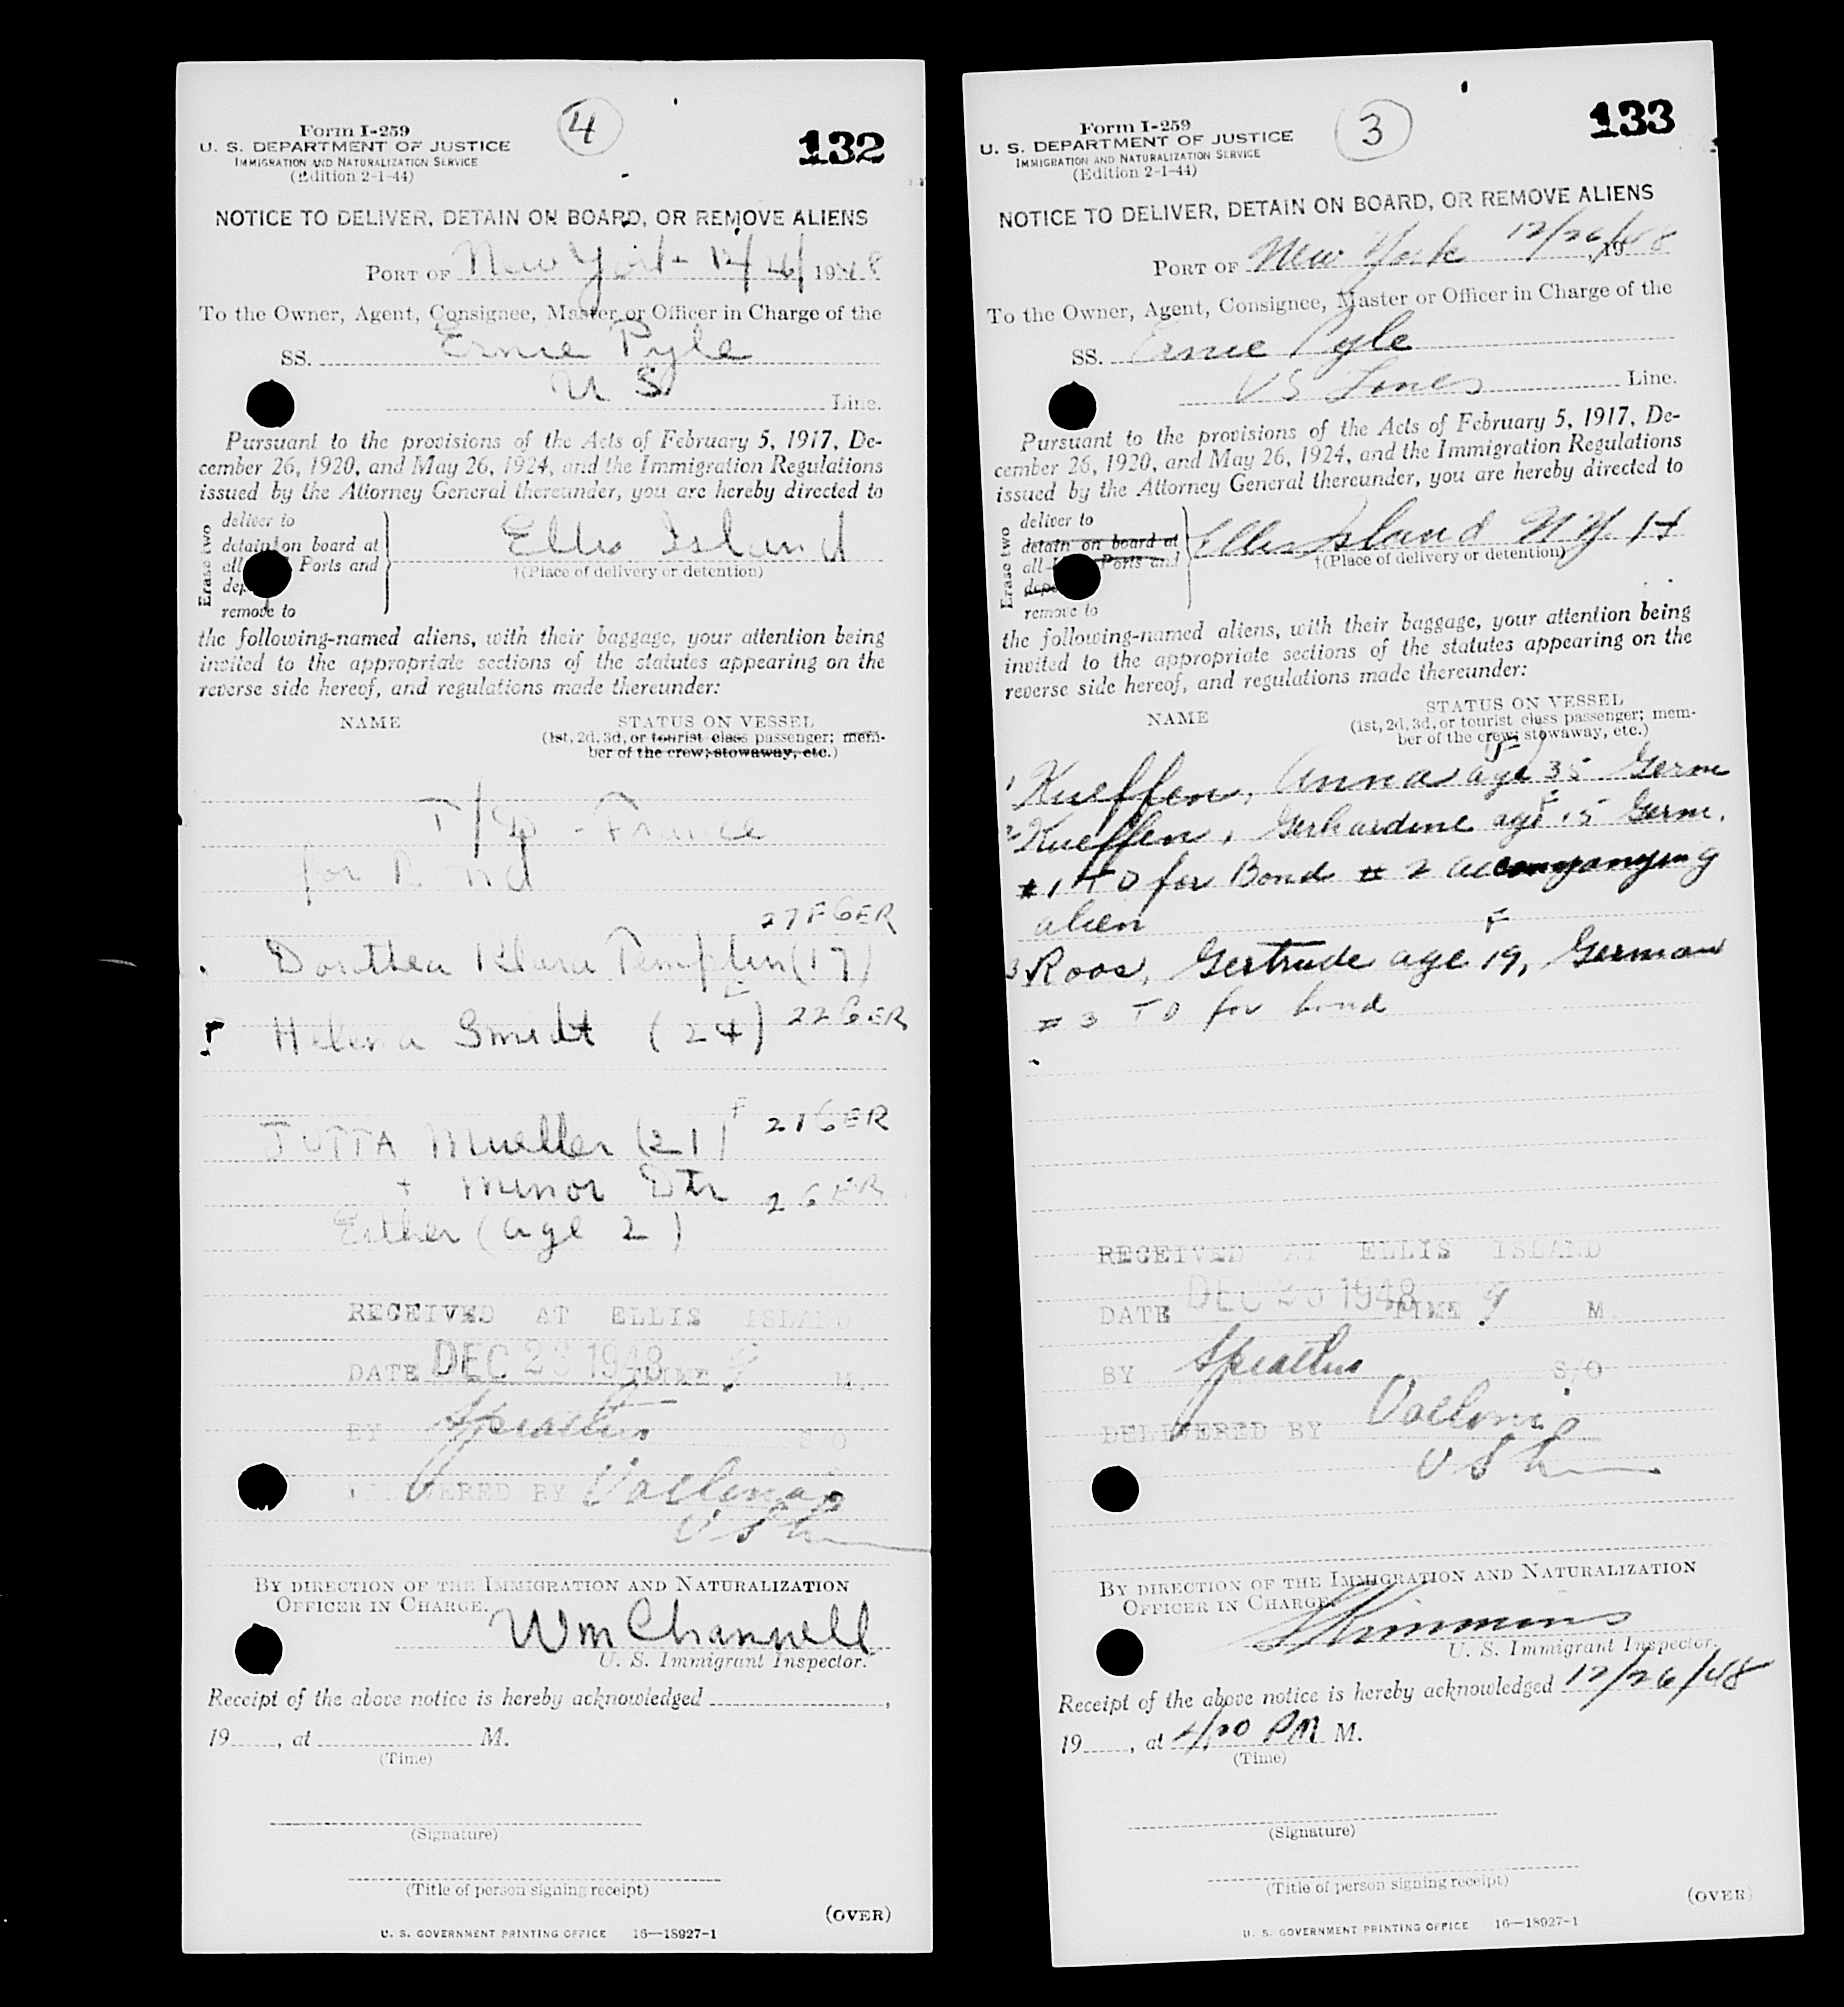 Form I-259
U. S. DEPARTMENT OF JUSTICE
IMMIGRATION AND NATURALIZATION SERVICE
(Edition 2-1-44)
4
132
NOTICE TO DELIVER, DETAIN ON BOARD, OR REMOVE ALIENS
PORT OF New York 12/26/ 1948
To the Owner, Agent, Consignee, Master or Officer in Charge of the
SS. Ernie Pyle
U S Line.
Pursuant to the provisions of the Acts of February 5, 1917, De-
cember 26, 1920, and May 26, 1924, and the Immigration Regulations
issued by the Attorney General thereunder, you are hereby directed to
Erase two
deliver to
detain on board at
all Ports and
remove to
Ellis Island
†(Place of delivery or detention)
the following-named aliens, with their baggage, your attention being
invited to the appropriate sections of the statutes appearing on the
reverse side hereof, and regulations made thereunder:
NAME
STATUS ON VESSEL
(1st, 2d, 3d, or tourist class passenger; mem-
ber of the crew; stowaway, etc.)
France
for
27 F GER
Dorothea Klara Templin (17)
Helena Smidt (24) 22 GER
JUTTA Mueller (21) F 21 GER
+ minor Dtr 2 GER
Esther (age 2)
RECEIVED AT ELLIS ISLAND
DATE DEC 26 1948 TIME 9 M.
BY S/O
DELIVERED BY
BY DIRECTION OF THE IMMIGRATION AND NATURALIZATION
OFFICER IN CHARGE.
Wm Channell
U. S. Immigrant Inspector.
Receipt of the above notice is hereby acknowledged ,
19 , at M.
(Time)
(Signature)
(Title of person signing receipt)
(OVER)
U. S. GOVERNMENT PRINTING OFFICE 16—18927-1
Form I-259
U. S. DEPARTMENT OF JUSTICE
IMMIGRATION AND NATURALIZATION SERVICE
(Edition 2-1-44)
3
133
NOTICE TO DELIVER, DETAIN ON BOARD, OR REMOVE ALIENS
PORT OF New York 12/26/48 , 19
To the Owner, Agent, Consignee, Master or Officer in Charge of the
SS. Ernie Pyle
US Lines Line.
Pursuant to the provisions of the Acts of February 5, 1917, De-
cember 26, 1920, and May 26, 1924, and the Immigration Regulations
issued by the Attorney General thereunder, you are hereby directed to
Erase two
deliver to
detain on board at
all Ports and
remove to
Ellis Island N.Y. H
†(Place of delivery or detention)
the following-named aliens, with their baggage, your attention being
invited to the appropriate sections of the statutes appearing on the
reverse side hereof, and regulations made thereunder:
NAME
STATUS ON VESSEL
(1st, 2d, 3d, or tourist class passenger; mem-
ber of the crew; stowaway, etc.)
1 Kueffen, Anna age 35 F Germ
2 Kueffen, Gerhardine age 15 F Germ.
# 1 TD for Bond # 2 accompanying
alien
3 Roos, Gertrude age 19, F German
# 3 TD for bond
RECEIVED AT ELLIS ISLAND
DATE DEC 26 1948 TIME 9 M.
BY S/O
DELIVERED BY
BY DIRECTION OF THE IMMIGRATION AND NATURALIZATION
OFFICER IN CHARGE.
U. S. Immigrant Inspector.
Receipt of the above notice is hereby acknowledged 12/26/48
19 , at 4/20 PM M.
(Time)
(Signature)
(Title of person signing receipt)
(OVER)
U. S. GOVERNMENT PRINTING OFFICE 16—18927-1